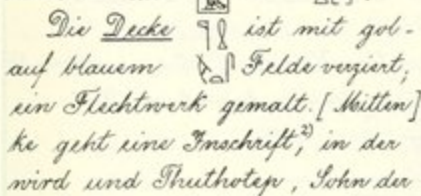 Die Decke ist mit gol-
auf blauem Felde verziert,
ein Flechtwerk gemalt. [Mitten]
ke geht eine Inschrift,²⁾ in der
wird und Thuthotep, Sohn der